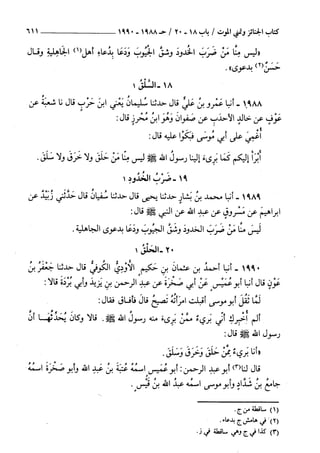 كتاب الجنائز وتمني الموت / باب ١٨ - ٢٠ / حـ ١٩٨٨ - ١٩٩٠ ٦١١
«ليس مِنَّا مَنْ ضَرَبَ الخُدودَ وشَقَّ الجُيوبَ ودَعَا بِدُعاءِ أهلِ(١) الجاهلية وقال
حَسَنٌ(٢) بدعوى».
١٨ - السَّلْقُ ١
١٩٨٨ - أنبا عَمْرو بن عليٍّ قال حدثنا سُليمانُ يَعْني ابنَ حَرْبٍ قال نا شعبةُ عن
عَوْفٍ عن خالدٍ الأحدَبِ عن صفوانَ وهُوَ ابنُ مُحْرِزٍ قال:
أُغْمِيَ على أبي مُوسَى فبَكَوْا عليه قال:
أبْرَأُ إليكم كَمَا بَرِىءَ إلينا رسولُ الله ﷺ ليس مِنَّا مَنْ حَلَقَ ولا خَرَقَ ولا سَلَقَ.
١٩ - ضَرْبُ الخُدُودِ ١
١٩٨٩ - أنبا محمد بنُ بَشارٍ حدثنا يحيى قال حدثنا سُفيانُ قال حَدَّثَني زُبَيْدٌ عن
ابراهيمَ عن مَسْروقٍ عن عبدِ الله عن النبي ﷺ قال:
لَيسَ مِنَّا مَنْ ضَرَبَ الخدودَ وشقَّ الجيوبَ ودَعَا بدعوى الجاهلية.
٢٠ - الحَلْقُ ١
١٩٩٠ - أنبا أحمدُ بن عثمانَ بنِ حَكيمٍ الأَوْدِيُّ الكوفيُّ قال حدثنا جَعْفَرُ بنُ
عَوْنٍ قال أنبا أبو عُمَيْسٍ عَنْ أبي صَخْرَةَ عن عبدِ الرحمن بنِ يزيدَ وأبي بُرْدَةَ قالا:
لمَّا ثَقُلَ أبو موسى أقبلت امرأتُه تَصيحُ قال فأفاق فقال:
ألم أُخبِركِ أنِّي بَرِيءٌ ممَّنْ بَرِىءَ منه رسولُ الله ﷺ. قالا وكان يُحَدِّثُهـا أنَّ
رسولَ الله ﷺ قال:
«أنا بَرِيءٌ مِمَّنْ حَلَقَ وخَرَقَ وسَلَقَ.
قال لنا(٣) أبو عبد الرحمن: أبو عُمَيسٍ اسمُهُ عُتْبَةُ بنُ عَبدِ الله وأبو صَخْرَةَ اسمُهُ
جامعُ بنُ شَدَّادٍ وأبو موسى اسمه عبدُ الله بنُ قَيْسٍ.
(١) ساقطة من ج.
(٢) في هامش ج بدعاء.
(٣) كذا في ج وهي ساقطة في ز.